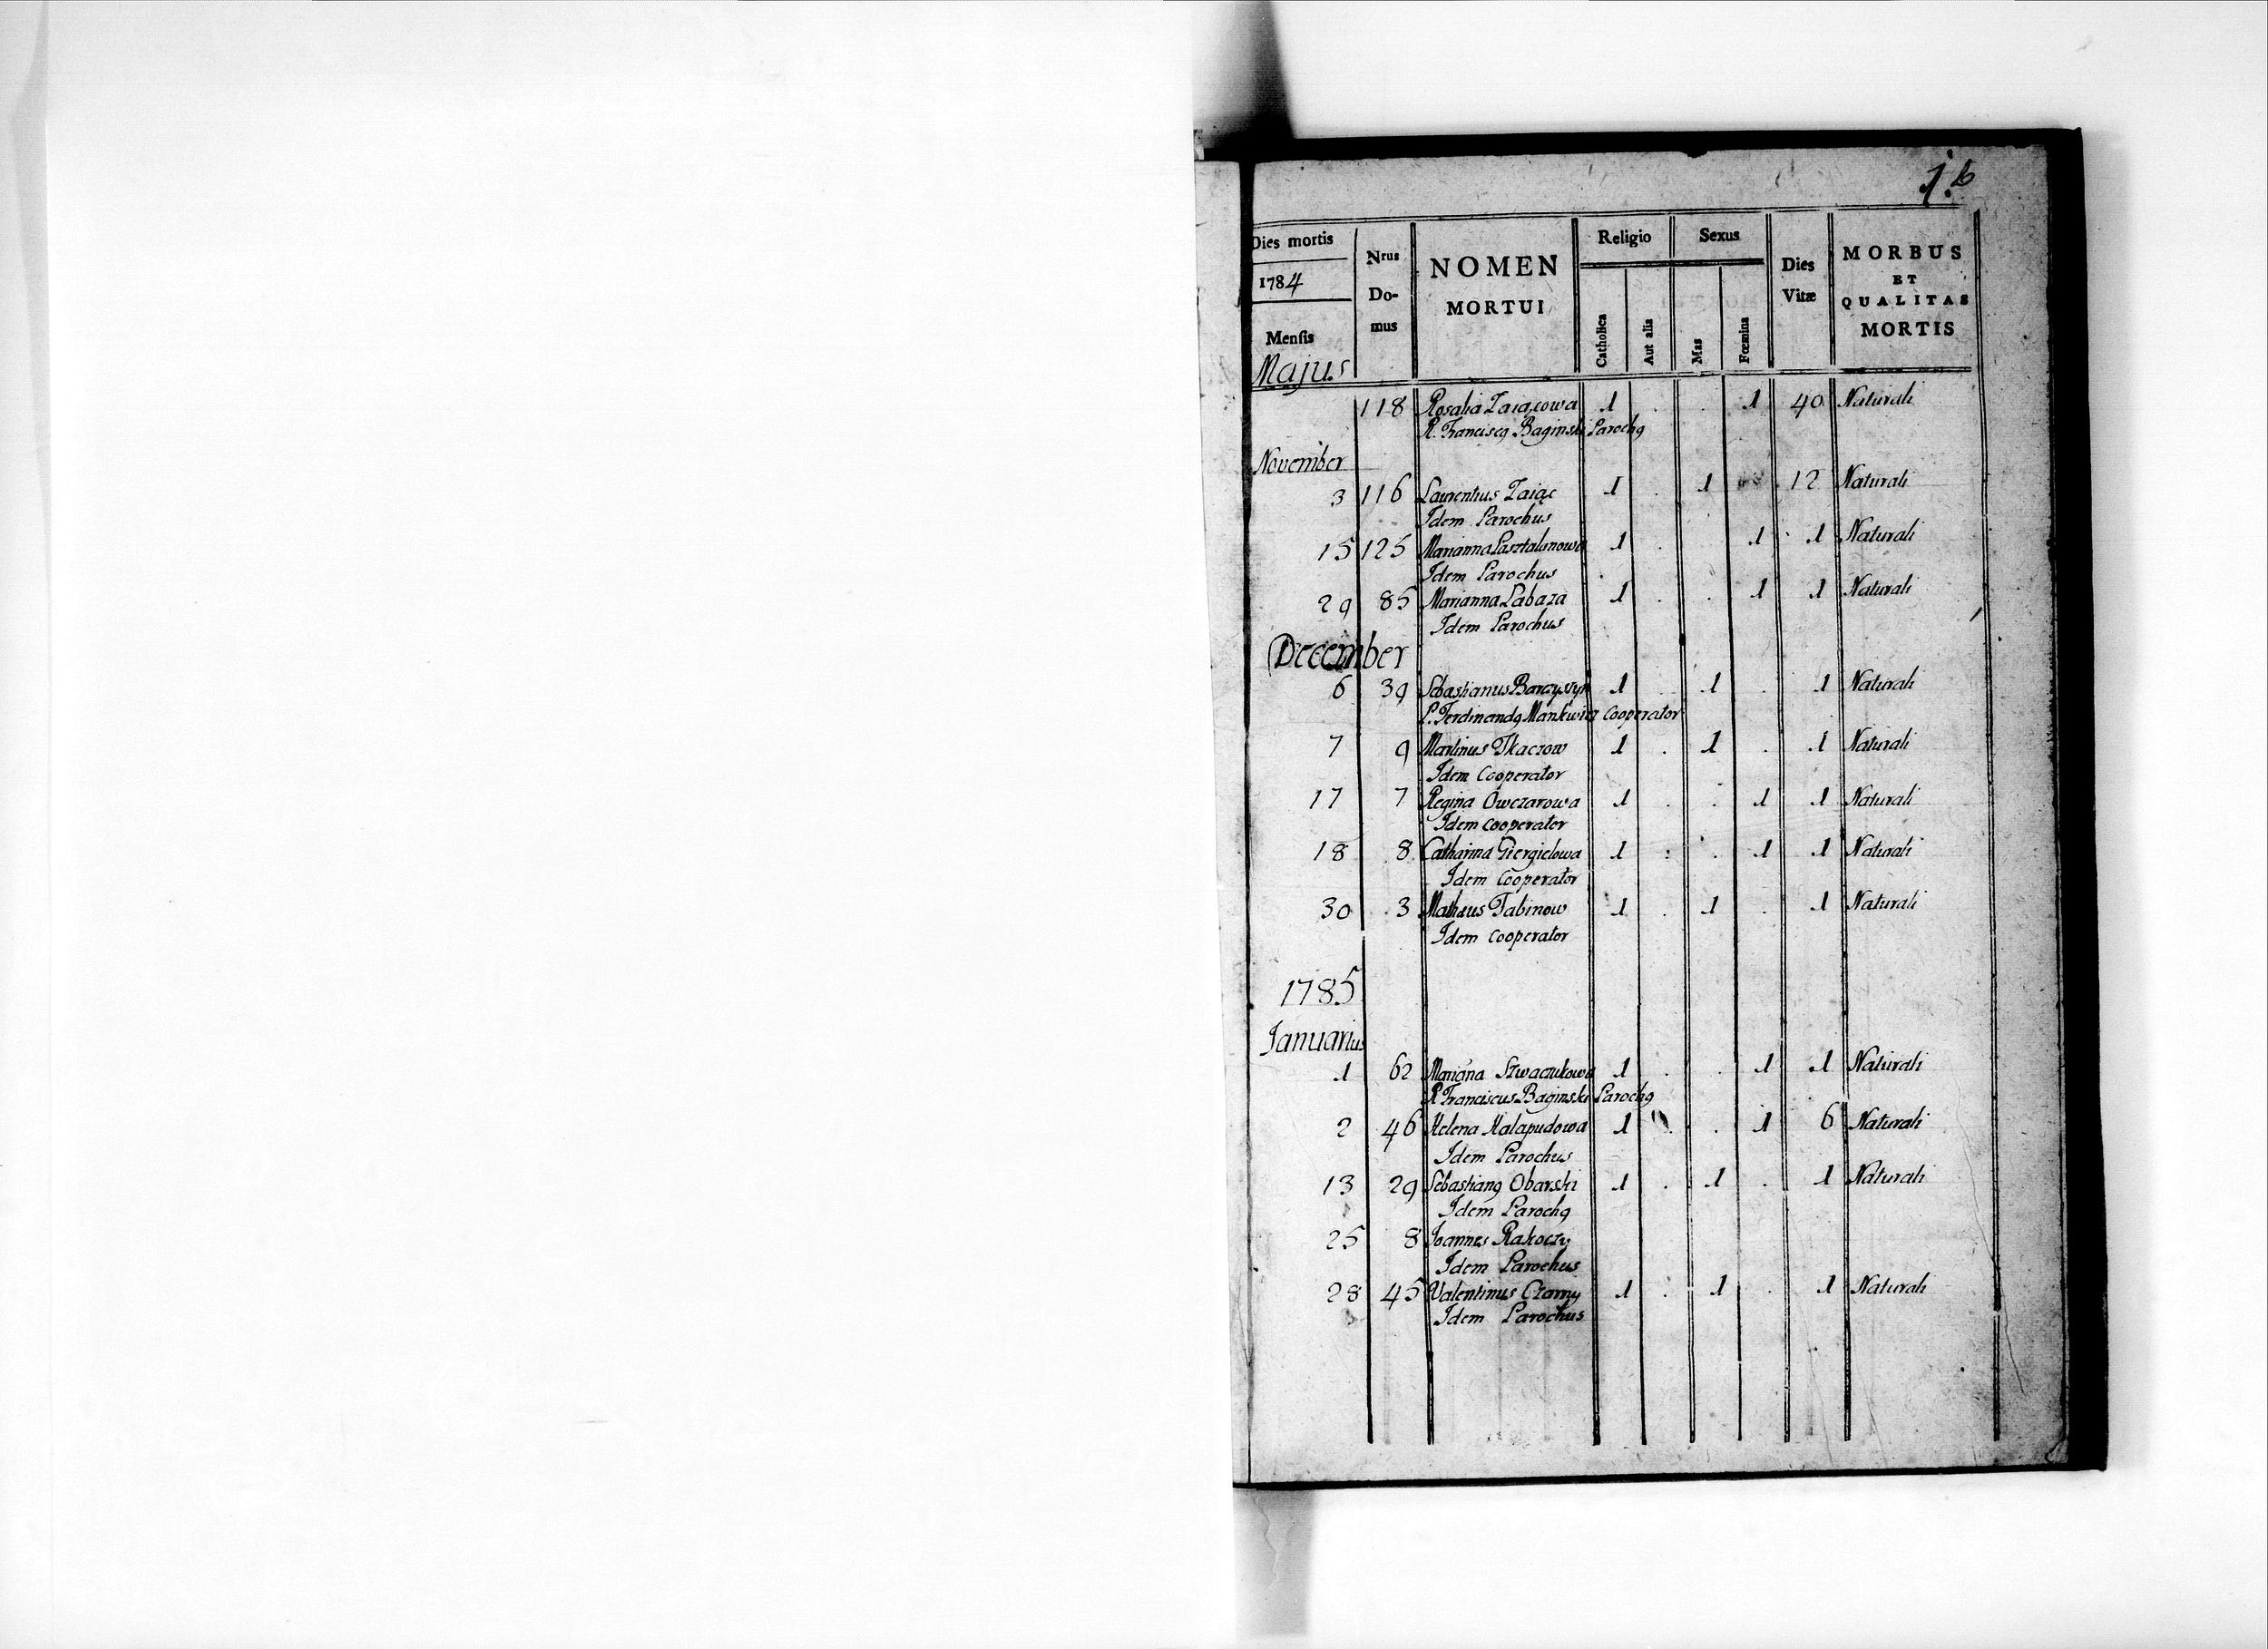 1.b
Dies mortis Nrus Do- mus NOMEN MORTUI Religio Sexus Dies Vitæ MORBUS ET QUALITAS MORTIS
1784
Mensis Catholica Aut alia Mas Fœmina
Majus
118 Rosalia Zaiącowa 1 . . 1 40 Naturali
R. Franciscq Baginski Parochq
November
3 116 Laurentius Zaiąc 1 . 1 12 Naturali
Idem Parochus
15 125 Marianna 1 . 1 . 1 Naturali
Idem Parochus
29 85 Marianna Labaza 1 . . 1 1 Naturali
Idem Parochus
December
6 39 Sebastianus 1 . 1 . 1 Naturali
P. Ferdinandq Mankwicz cooperator
7 9 Martinus Tkaczow 1 . 1 . 1 Naturali
Idem Cooperator
17 7 Regina Owczarowa 1 . . 1 1 Naturali
Idem cooperator
18 8 Catharina Giergielowa 1 . . 1 1 Naturali
Idem Cooperator
30 3 Mathæus Tabinow 1 . 1 . 1 Naturali
Idem cooperator
1785
Januarius
1 62 Mariana Szwaczukowa 1 . . 1 1 Naturali
R Franciscus Baginski Parochq
2 46 Helena Halapudowa 1 . . 1 6 Naturali
Idem Parochus
13 29 Sebastianq Obarski 1 . 1 . 1 Naturali
Idem Parochq
25 8 Joannes Rakoczy
Idem Parochus
28 45 Valentinus Czarny 1 . 1 . 1 Naturali
Idem Parochus